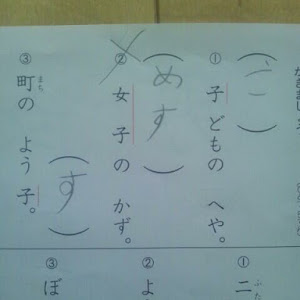 ① 子どもの へや。
(こ)
② 女子の かず。
(めす)
③ 町の よう子。
まち
(す)
① 二
ふた
② よ
③ ぼ